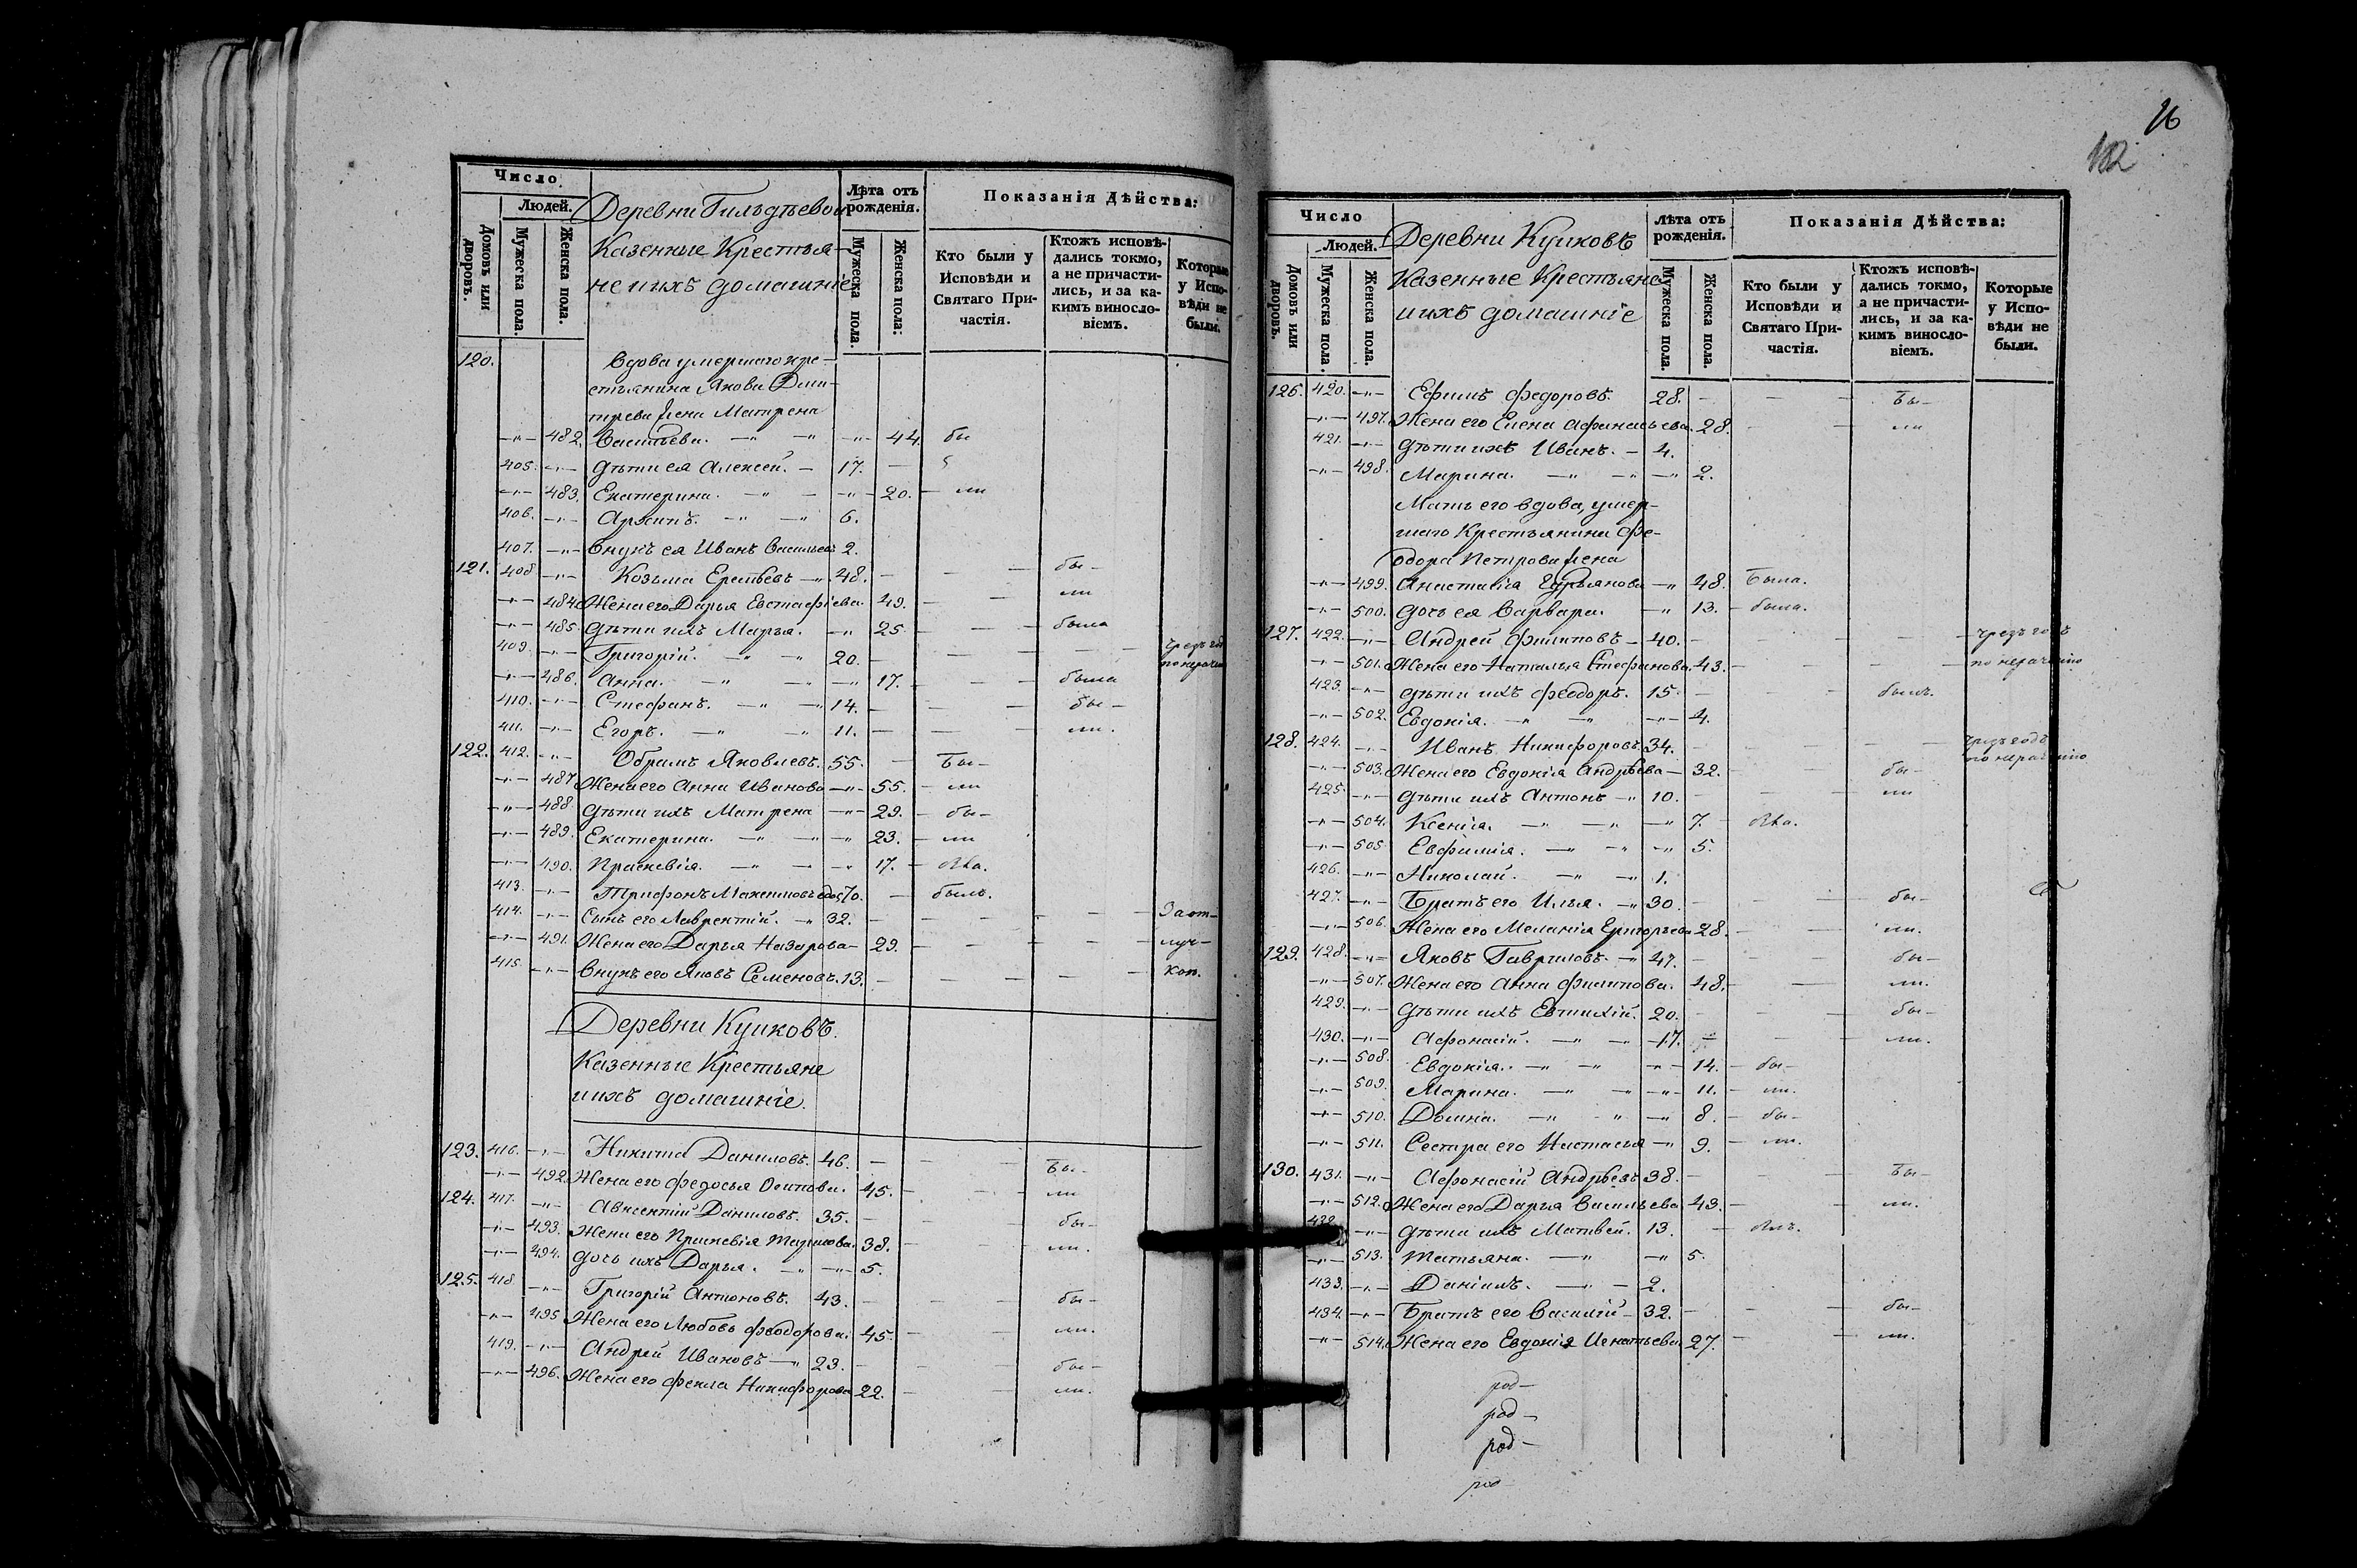 Число
Людей.
Домовъ или дворовъ.
Мужеска пола.
Женска пола.
Деревни Гильдѣевой
Казенные Крестья-
не ихъ домашніе
Лѣта отъ рожденія.
Мужеска пола.
Женска пола:
Показанія Дѣйства:
Кто были у Исповѣди и Святаго При-частія.
Ктожъ исповѣ-дались токмо, а не причасти-лись, и за ка-кимъ винословіемъ.
Которые у Испо-вѣди не были.
120. Вдова умершаго кре-
стьянина Якова Дми-
трева жена Матрена
-"- 482. Васильева. -"- -"- -"- 44. бы
405. -"- Дѣти ея Алексей. - 17. -
-"- 483. Екатерина. -"- - -"- 20. - ли
406. -"- Архипъ. -"- -"- 6.
407. -"- Внукъ ея Иванъ Васильевъ 2.
121. 408. -"- Козьма Еремѣевъ -"- 48. - - - бы-
-"- 484. Жена его Дарья Евстафіева. 49. - - ли
-"- 485. Дѣти ихъ Марья. -"- 25. - - была
409. -"- Григорій. -"- -"- 20. - - - - чрезъ год
по нерачен
-"- 486. Анна. -"- -"- -"- 17. - - была
410. -"- Стефанъ. -"- -"- 14. - - - бы-
411. -"- Егоръ. -"- -"- 11. - - - ли.
122. 412. -"- Обрамъ Яковлевъ. 55. - бы-
-"- 487. Жена его Анна Иванова -"- 55. - ли
-"- 488. Дѣти ихъ Матрена -"- 29. - бы-
-"- 489. Екатерина. -"- -"- -"- 23. - ли
-"- 490. Праскевія. -"- - -"- 17. -
413. -"- Трифонъ Максимовъ вдов 70. - былъ.
414. -"- Сынъ его Лаврентій. -"- 32. - - - - - За от-
-"- 491. Жена его Дарья Назарова- 29. - - - - луч-
415. -"- Внукъ его Яковъ Семеновъ. 13. - - - - кою.
Деревни Куиковъ.
Казенные Крестьяне
ихъ домашніе.
123. 416. -"- Никита Даниловъ. 46. - - бы-
-"- 492. Жена его Федосья Осипова. 45. - - ли
124. 417. -"- Авксентій Даниловъ. 35. - - бы-
-"- 493. Жена его Праскевія Тарасова. 38. - - ли.
-"- 494. Дочь ихъ Дарья. -"- -"- 5.
125. 418. -"- Григорій Антоновъ. 43. - - - бы-
-"- 495. Жена его Любовь Феодорова. 45. - - ли.
419. -"- Андрей Ивановъ -"- 23. - - бы-
-"- 496. Жена его Фекла Никифорова 22. - - ли.
16
102
Число
Людей.
Домовъ или дворовъ.
Мужеска пола.
Женска пола.
Деревни Куиковъ
Казенные Крестьяне
ихъ домашніе
Лѣта отъ рожденія.
Мужеска пола.
Женска пола.
Показанія Дѣйства:
Кто были у Исповѣди и Святаго При-частія.
Ктожъ исповѣ-дались токмо, а не причасти-лись, и за ка-кимъ винословіемъ.
Которые у Испо-вѣди не были.
126. 420. -"- Ефимъ Федоровъ. 28. - - - бы-
-"- 497. Жена его Елена Афанасьева. 28. - - ли
421. -"- Дѣти ихъ Иванъ. - 4.
-"- 498. Марина. -"- -"- -"- 2.
Мать его вдова, умер-
шаго Крестьянина Фе-
одора Петрова жена
-"- 499. Анастасія -"- 48. Была.
-"- 500. Дочь ея Варвара. -"- 13. - была.
127. 422. -"- Андрей Филиповъ - 40. - - - - чрезъ годъ
-"- 501. Жена его Наталья Стефанова. 43. - - - по нераченію
423. -"- Дѣти ихъ Феодоръ. 15. - - былъ.
-"- 502. Евдокія. -"- -"- -"- 4.
128. 424. -"- Иванъ Никифоровъ. 34. - - - - чрезъ годъ
по нераченію
-"- 503. Жена его Евдокія Андрѣева- 32. - - бы-
425. -"- Дѣти ихъ Антонъ -"- 10. - - ли
-"- 504. Ксенія. -"- -"- -"- 7. -
-"- 505. Евфимія. -"- -"- -"- 5.
426. -"- Николай. -"- -"- 1.
427. -"- Братъ его Илья. -"- 30. - - бы-
-"- 506. Жена его Меланія Григорьева 28. - - ли.
129. 428. -"- Яковъ Гавриловъ. -"- 47. - - - бы-
-"- 507. Жена его Анна Филипова. 48. - - ли.
429. -"- Дѣти ихъ Евтихій. 20. - - - бы-
430. -"- Афонасій. -"- -"- 17. - - - ли.
-"- 508. Евдокія. -"- -"- -"- 14. - бы-
-"- 509. Марина. -"- -"- -"- 11. - ли.
-"- 510. Домна. -"- -"- -"- 8. - бы-
-"- 511. Сестра его Настасья -"- 9. - ли.
130. 431. -"- Афонасій Андрѣевъ 38. - - - бы-
-"- 512. Жена его Дарья Васильева 43. - - ли.
432. -"- Дѣти ихъ Матвей. 13. -
-"- 513. Татьяна. -"- -"- 5.
433. -"- Даніилъ. -"- - 2.
434. -"- Братъ его Василій - 32. - - - бы-
-"- 514. Жена его Евдокія Игнатьева 27. - - ли.
род-
род-
род-
род-